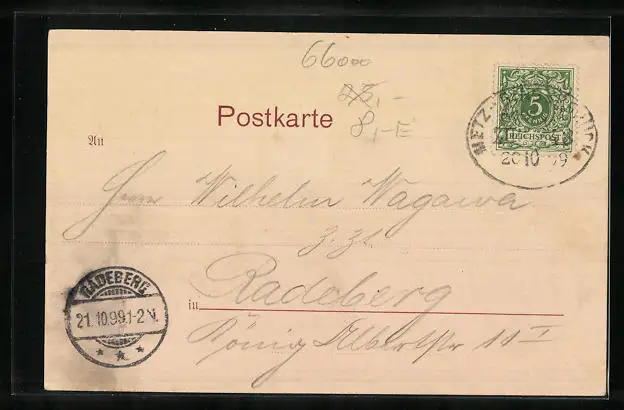 66000
25,-
8,-E
Postkarte
5
PFENNIG
REICHSPOST
METZ
20 10 99
An
Herrn Wilhelm Wagawa
z. Zt.
in Radeberg
König Albertstr 10 I
RADEBERG
21.10.99.1-2 N.